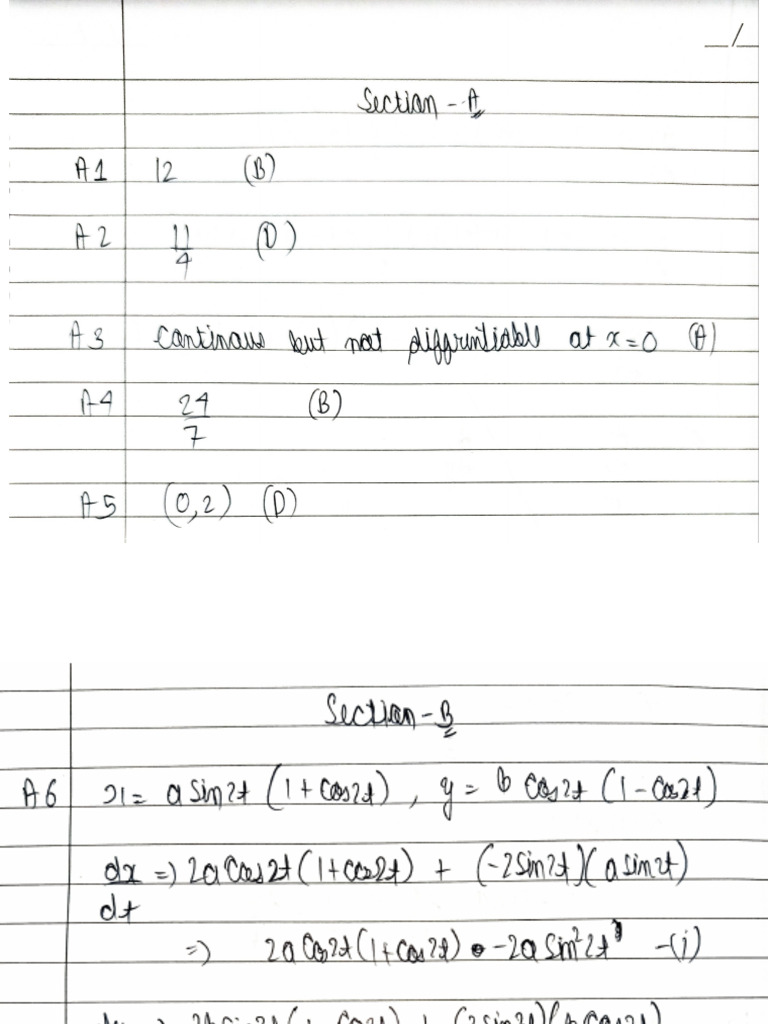 Section - A
A1 12 (B)
A2 11/4 (D)
A3 Continous but not diffrintiable at x=0 (A)
A4 24/7 (B)
A5 (0,2) (D)
Section - B
A6 x = a sin2t (1 + cos2t) , y = b cos2t (1 - cos2t)
dx/dt => 2a cos2t (1+cos2t) + (-2sin2t)(a sin2t)
=> 2a cos2t (1+cos2t) - 2a sin²2t -(i)